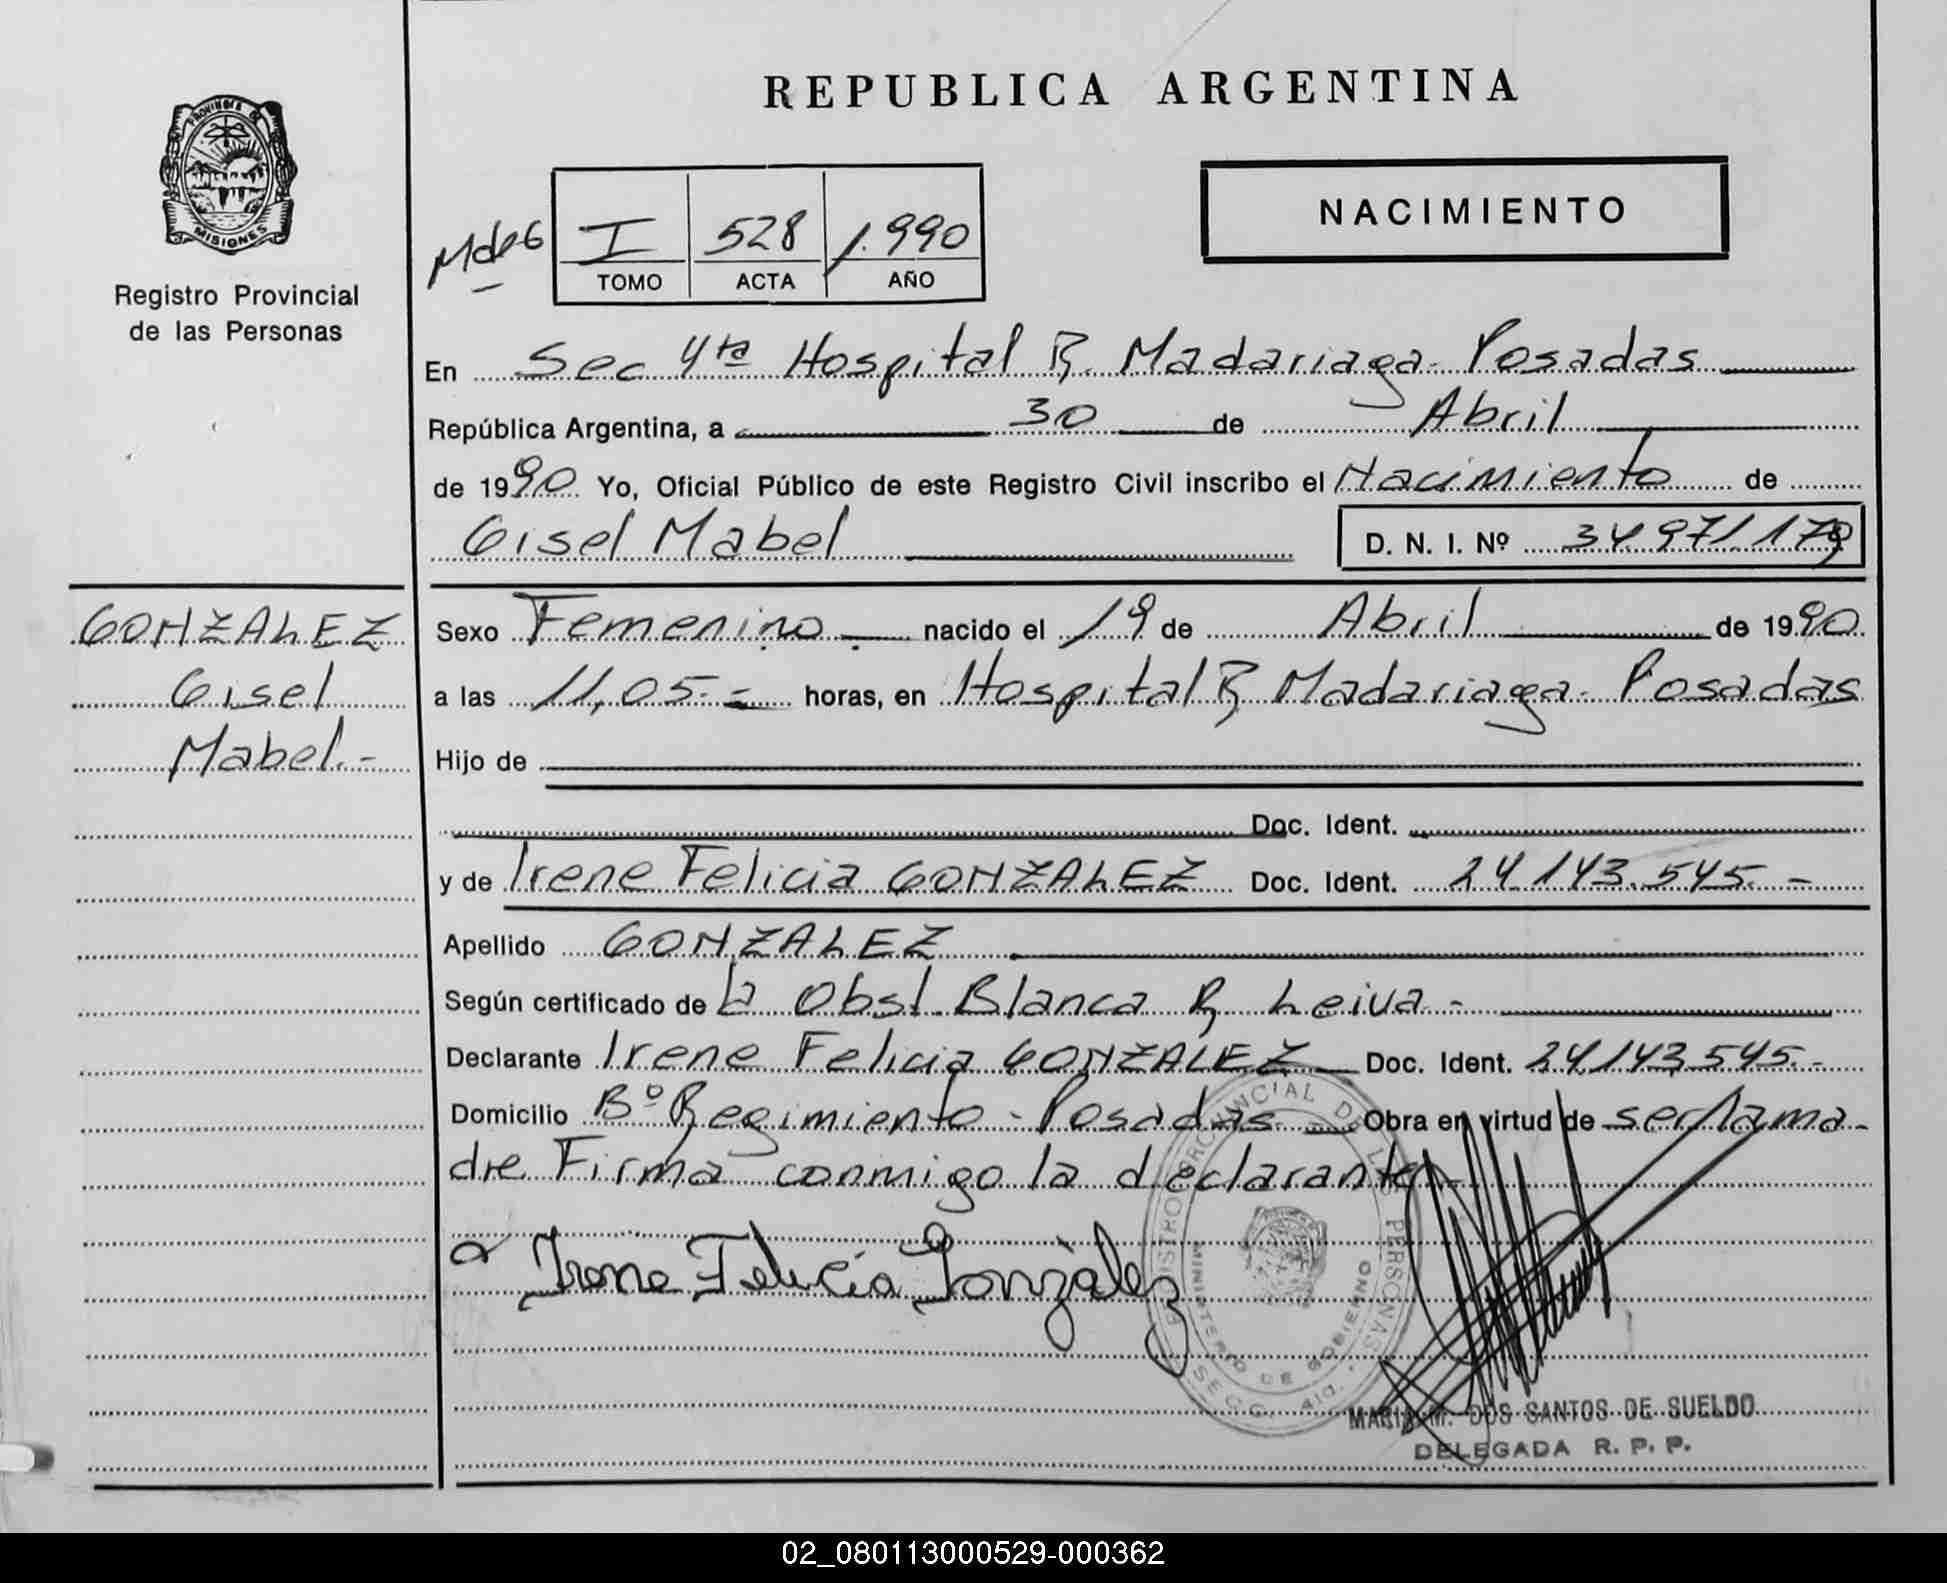 REPUBLICA ARGENTINA
PROVINCIA DE
MISIONES
Registro Provincial
de las Personas
NACIMIENTO
I 528 1.990
TOMO ACTA AÑO
En Sec 4ta Hospital R. Madariaga- Posadas
República Argentina, a 30 de Abril
de 1990 Yo, Oficial Público de este Registro Civil inscribo el Nacimiento de
Gisel Mabel D. N. I. Nº 34 971 179
GONZALEZ
Gisel
Mabel.-
Sexo Femenino nacido el 19 de Abril de 1990
a las 11,05.- horas, en Hospital R Madariaga- Posadas
Hijo de
Doc. Ident.
y de Irene Felicia GONZALEZ Doc. Ident. 24 143.545.-
Apellido GONZALEZ
Según certificado de la Obst. Blanca R Leiva-
Declarante Irene Felicia GONZALEZ Doc. Ident. 24.143.545.-
Domicilio Bº Regimiento - Posadas Obra en virtud de ser la ma-
dre Firma conmigo la declarante.-
Irene Felicia González
REGISTRO PROVINCIAL DE LAS PERSONAS
MINISTERIO DE GOBIERNO
MARIA M. DOS SANTOS DE SUELDO
DELEGADA R. P. P.
02_080113000529-000362